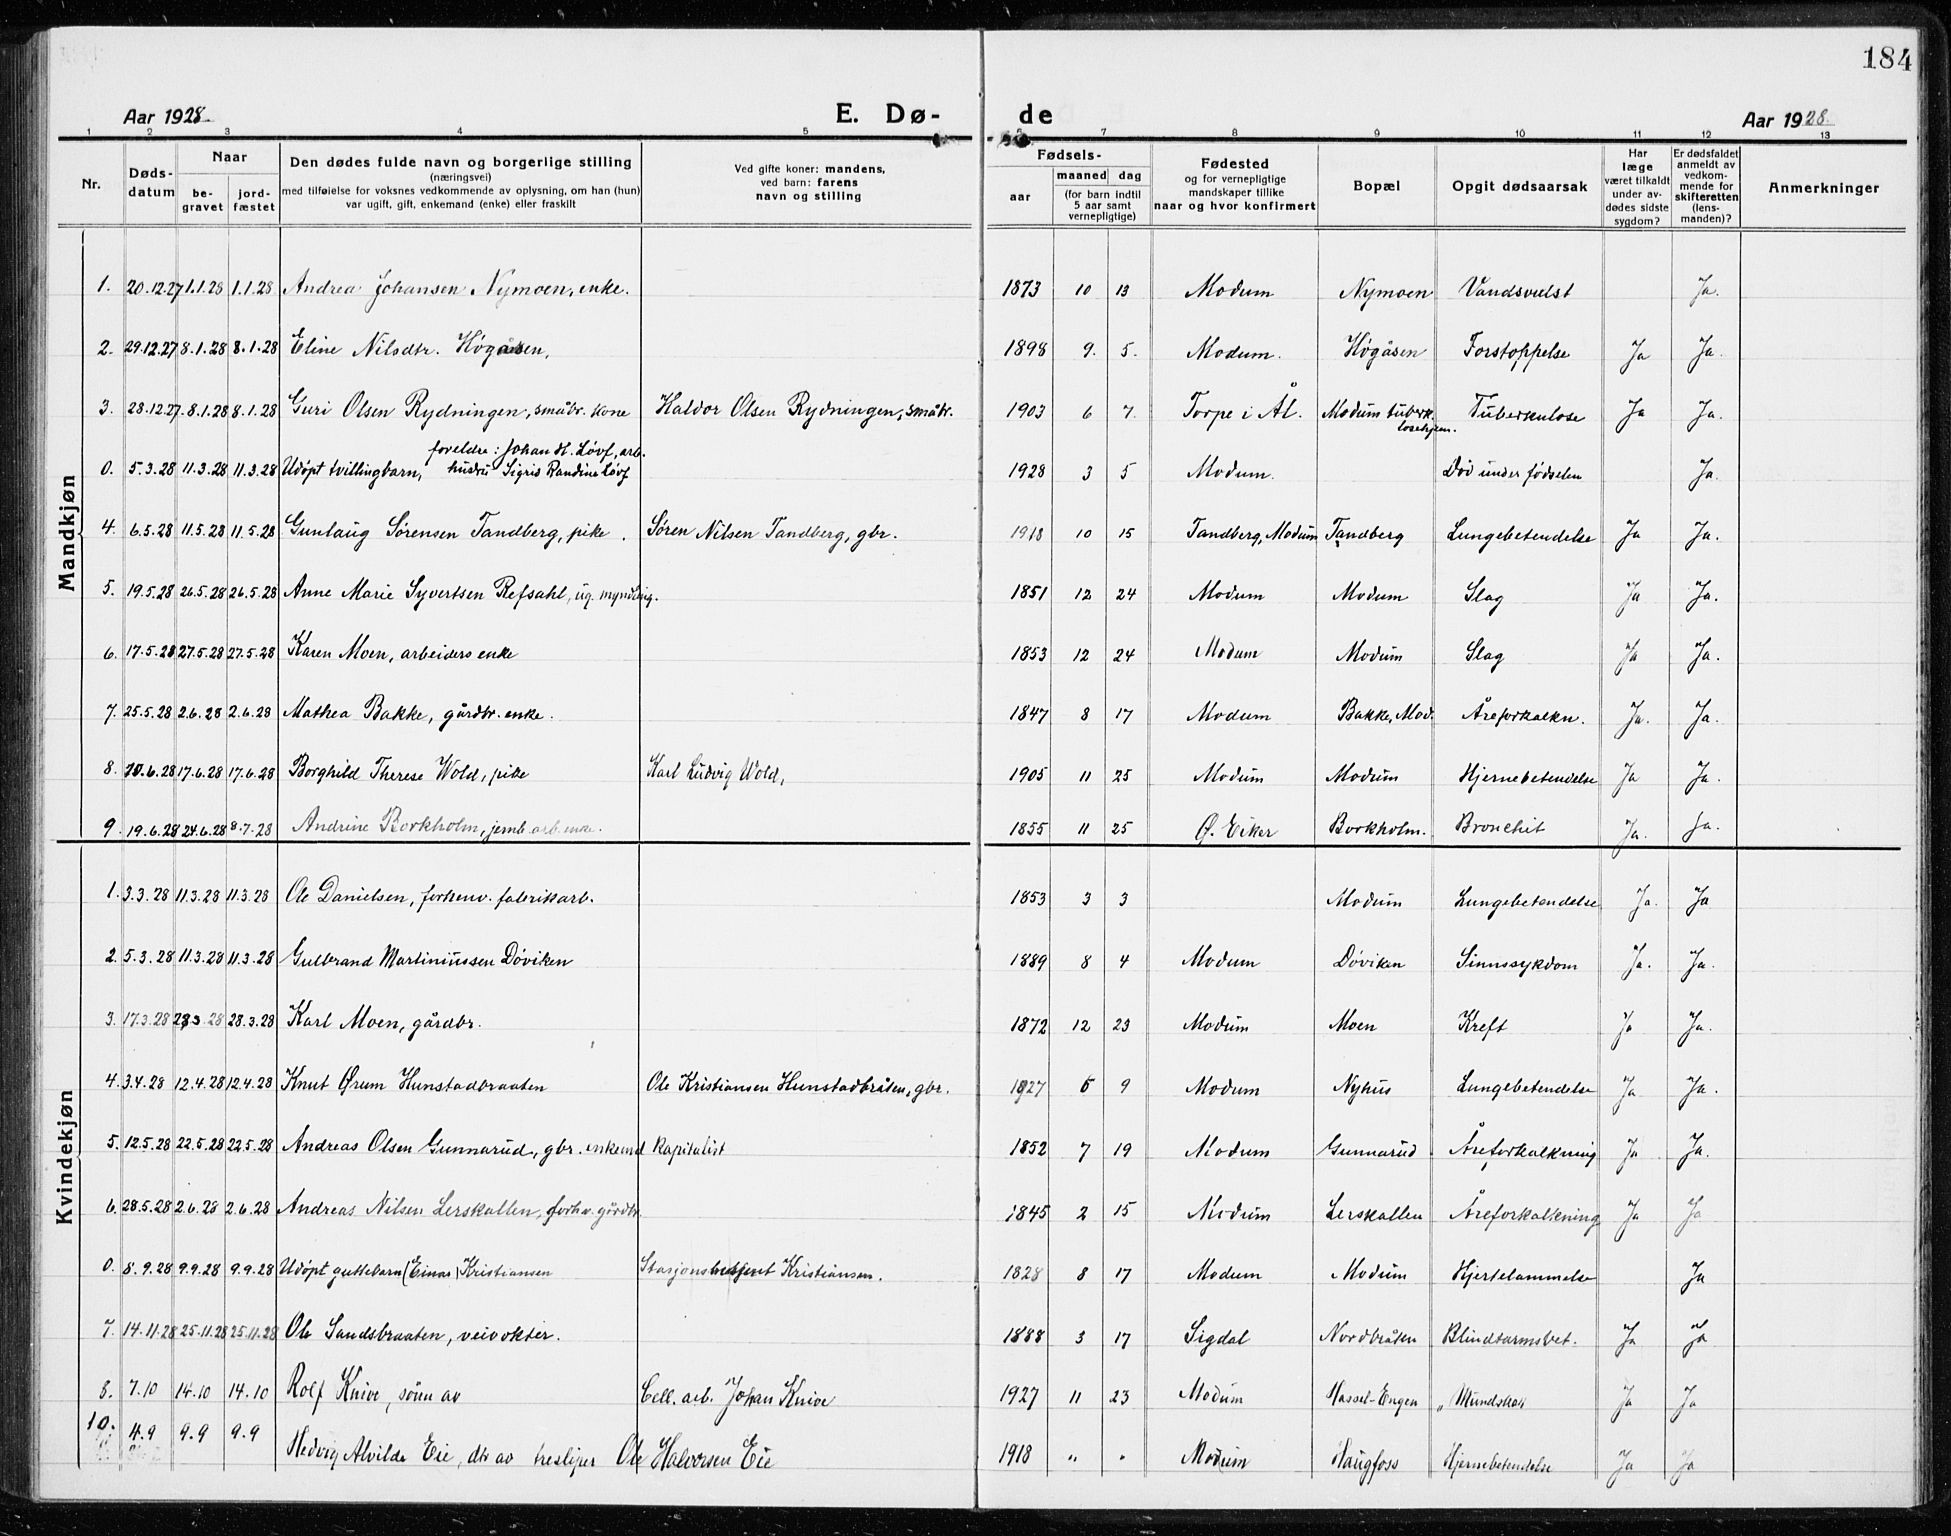 184
Aar 1928. E. Dø- de Aar 1928.
1 2 3 4 5 6 7 8 9 10 11 12 13
Nr. Døds-datum Naar be-gravet jord-fæstet Den dødes fulde navn og borgerlige stilling (næringsvei) med tilføielse for voksnes vedkommende av oplysning, om han (hun) var ugift, gift, enkemand (enke) eller fraskilt Ved gifte koner: mandens, ved barn: farens navn og stilling Fødsels- aar maaned dag (for barn indtil 5 aar samt vernepligtige) Fødested og for vernepligtige mandskaper tillike naar og hvor konfirmert Bopæl Opgit dødsaarsak Har læge været tilkaldt under av-dødes sidste sygdom? Er dødsfaldet anmeldt av vedkom-mende for skifteretten (lens-manden)? Anmerkninger
Mandkjøn
1. 20.12.27 1.1.28 1.1.28 Andrea Johansen Nymoen, enke. 1873 10 13 Modum Nymoen Vandsvulst Ja.
2. 29.12.27 8.1.28 8.1.28 Eline Nilsdtr. Høgåsen, 1898 9. 5. Modum. Høgåsen Forstoppelse Ja Ja.
3. 28.12.27 8.1.28 8.1.28 Guri Olsen Rydningen, småbr. kone Haldor Olsen Rydningen, småbr. 1903 6 7. Torpe i Ål. Modum tuberk. losehjem. Tuberkulose Ja Ja.
foreldre: Johan H. Løvf, arb.
0. 5.3.28 11.3.28 11.3.28 Udöpt tvillingbarn, hustru Sigrid Randine Løvf 1928 3 5 Modum. Död under fødselen Ja.
4. 6.5.28 11.5.28 11.5.28 Gunlaug Sørensen Tandberg, pike. Søren Nilsen Tandberg, gbr. 1918 10 15 Tandberg, Modum Tandberg Lungebetendelse Ja Ja.
5. 19.5.28 26.5.28 26.5.28 Anne Marie Syvertsen Refsahl, ug. myndling. 1851 12 24 Modum Modum Slag Ja Ja.
6. 17.5.28 27.5.28 27.5.28 Karen Moen, arbeiders enke 1853 12 24 Modum Modum Slag Ja Ja.
7. 25.5.28 2.6.28 2.6.28 Mathea Bakke, gårdbr. enke. 1847 8 17 Modum Bakke, Mod. Åreforkalkn. Ja. Ja.
8. 10.6.28 17.6.28 17.6.28 Borghild Therese Wold, pike Karl Ludvig Wold, 1905 11 25 Modum Modum Hjernebetendelse Ja Ja.
9. 19.6.28 24.6.28 8.7.28 Andrine Borkholm, jernb. arb. enke. 1855 11 25 Ø. Eiker Borkholm. Bronchit Ja. Ja.
Kvindekjøn
1. 3.3.28 11.3.28 11.3.28 Ole Danielsen, forhenv. fabrikarb. 1853 3 3 Modum Lungebetendelse Ja. Ja
2. 5.3.28 11.3.28 11.3.28 Gulbrand Martiniussen Döviken 1889 8 4 Modum Döviken Sinnssykdom Ja. Ja.
3. 17.3.28 28.3.28 28.3.28 Karl Moen, gårdbr. 1872 12 23 Modum Moen Kreft Ja Ja.
4. 3.4.28 12.4.28 12.4.28 Knut Ørum Hunstadbraaten Ole Kristiansen Hunstadbråten, gbr. 1927 6 9 Modum Nyhus Lungebetendelse Ja Ja.
5. 12.5.28 22.5.28 22.5.28 Andreas Olsen Gunnarud, gbr. enkemd kapitalist 1852 7 19 Modum Gunnarud Åreforkalkning Ja Ja.
6. 28.5.28 2.6.28 2.6.28 Andreas Nilsen Lerskallen, forhv. gårdbr. 1845 2 15 Modum Lerskallen Åreforkalkning Ja Ja
0. 8.9.28 9.9.28 9.9.28 Udöpt guttebarn (Einar) Kristiansen Stasjonsbetjent Kristiansen. 1828 8 17 Modum Modum Hjertelammelse Ja
7. 14.11.28 25.11.28 25.11.28 Ole Sandsbraaten, veivokter. 1888 3 17 Sigdal Nordbråten Blindtarmsbet. Ja Ja
8. 7.10 14.10 14.10 Rolf Knive, sönn av Cell. arb. Johan Knive 1927 11 23 Modum Hassel-Engen „ Mundskak Ja Ja
10. 4.9 9.9 9.9 Hedvig Alvilde Eie, dtr av tresliper Ole Halvorsen Eie 1918 „ „ Modum Haugfoss Hjernebetendelse Ja Ja